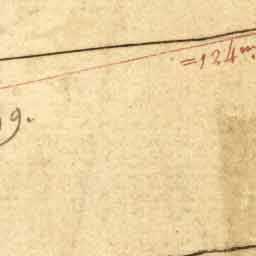 =124m.
19.